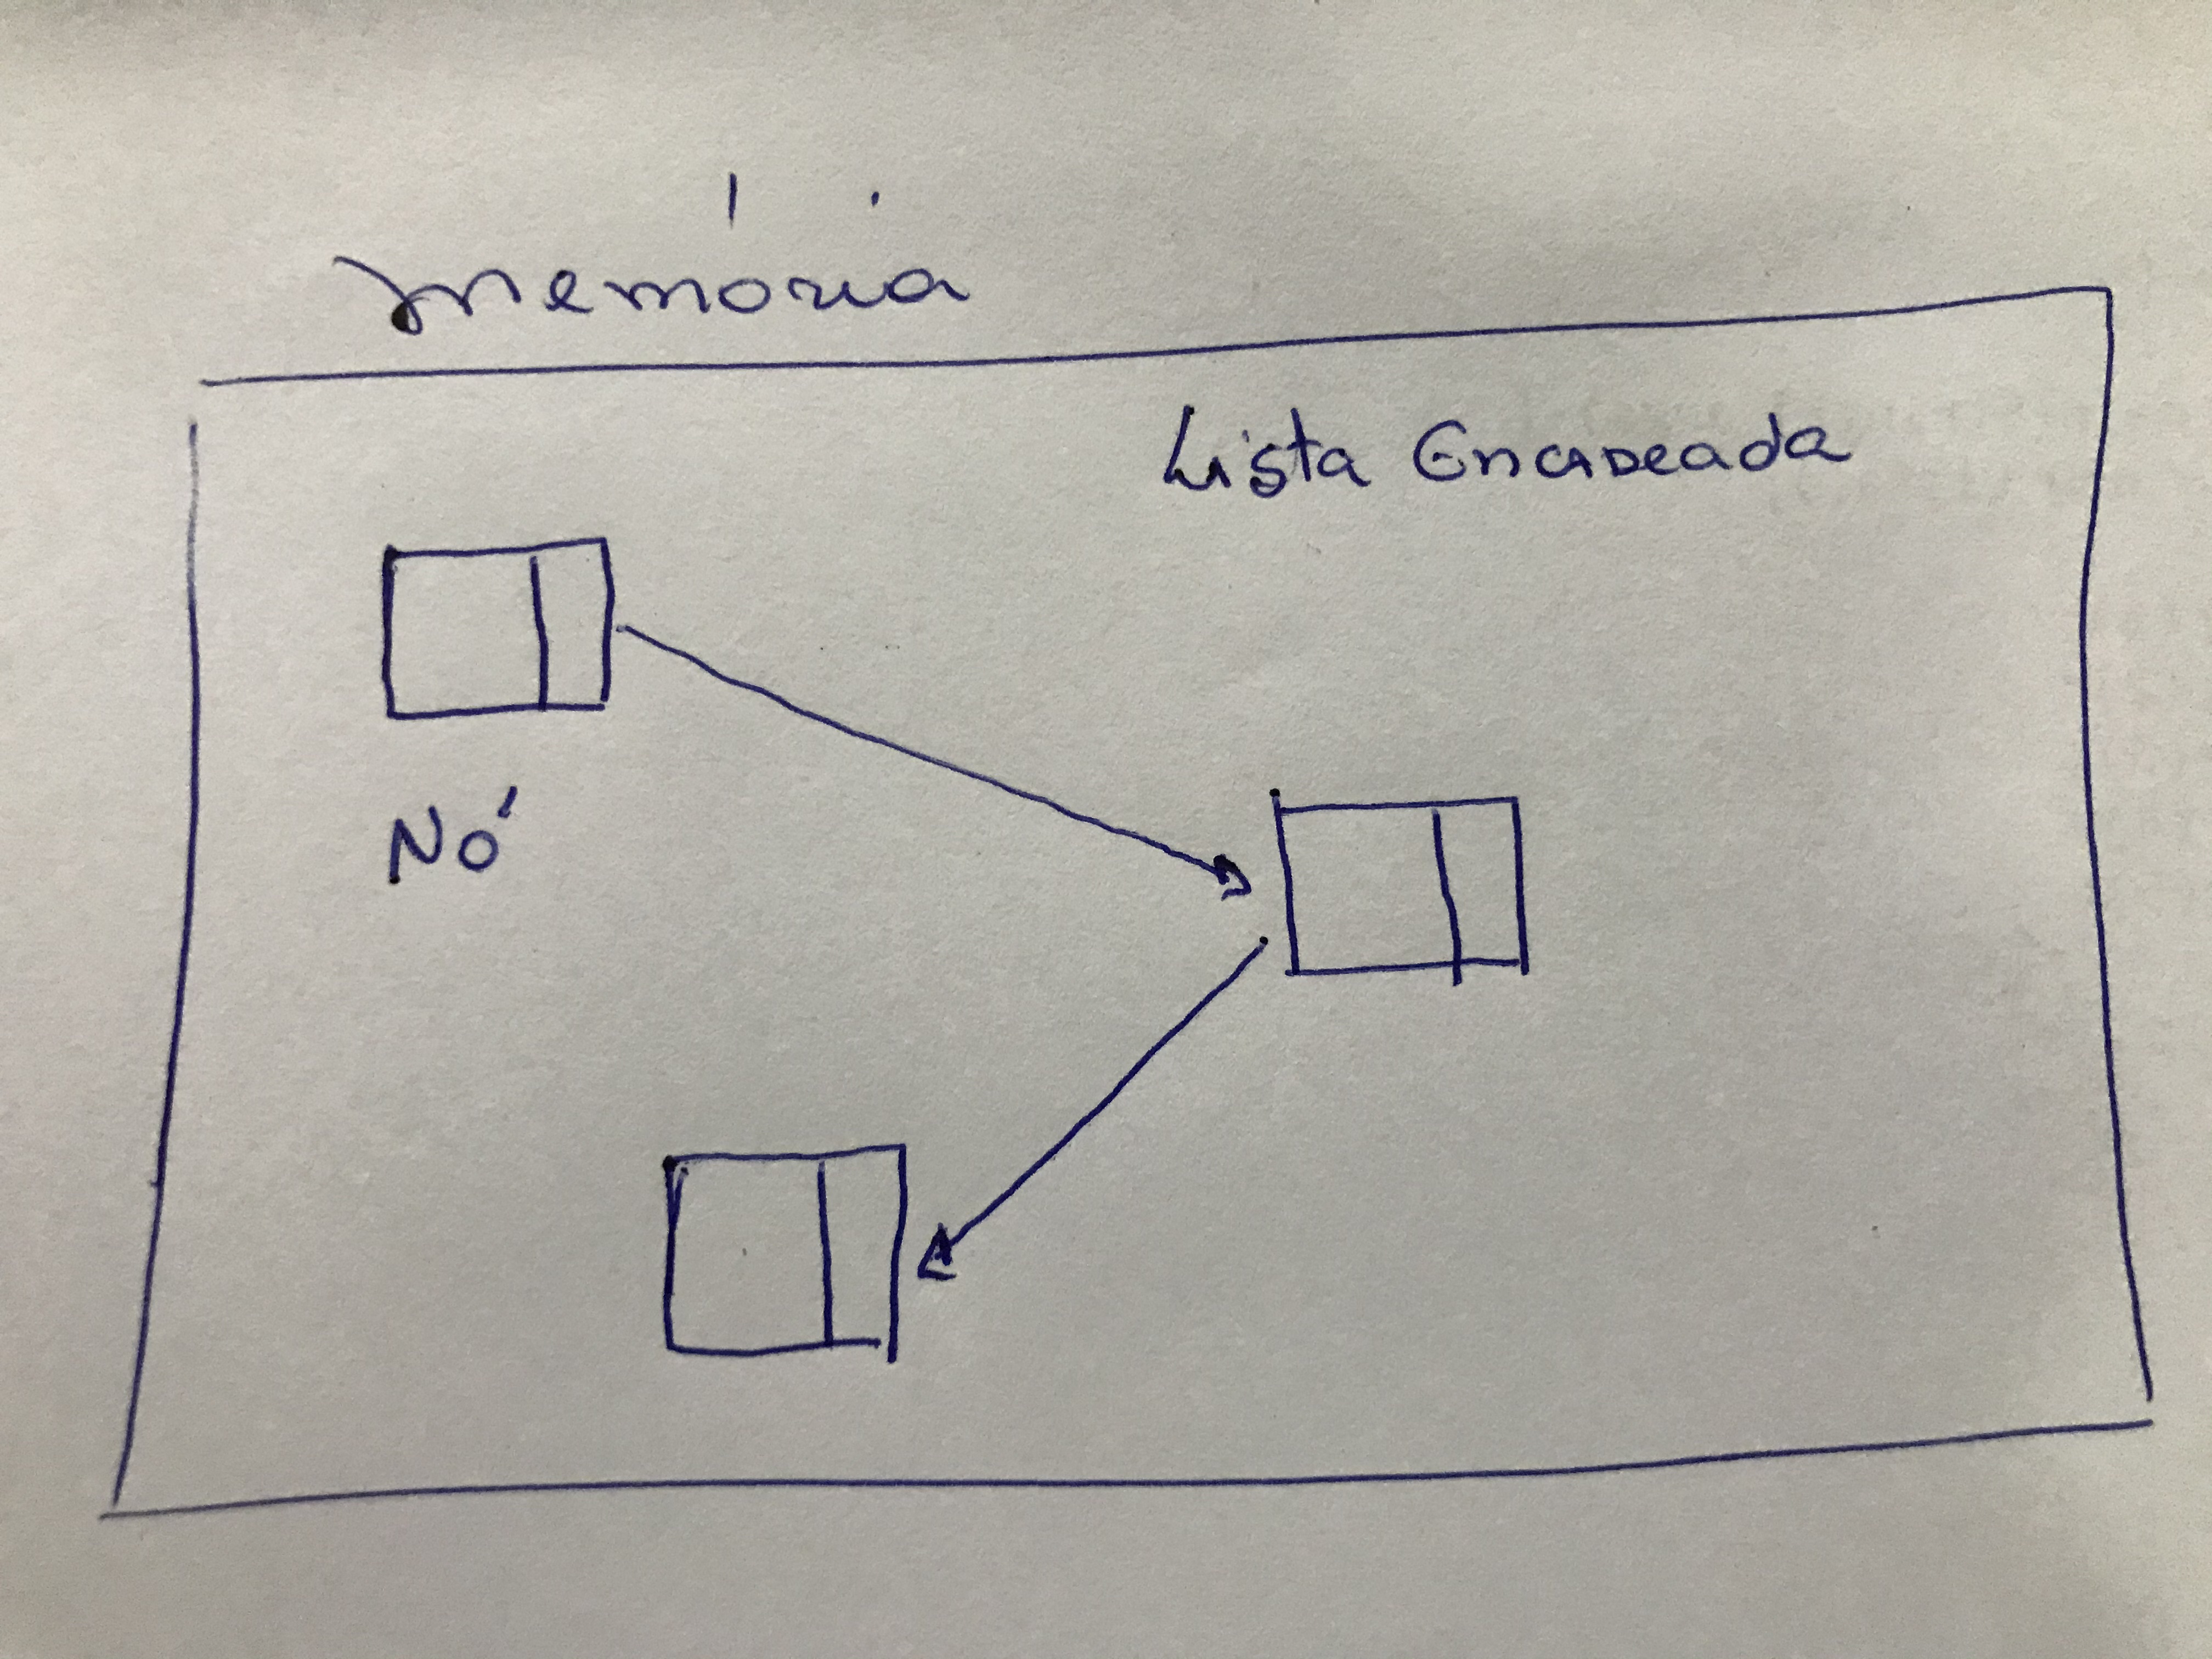 memória
Lista Encadeada
Nó